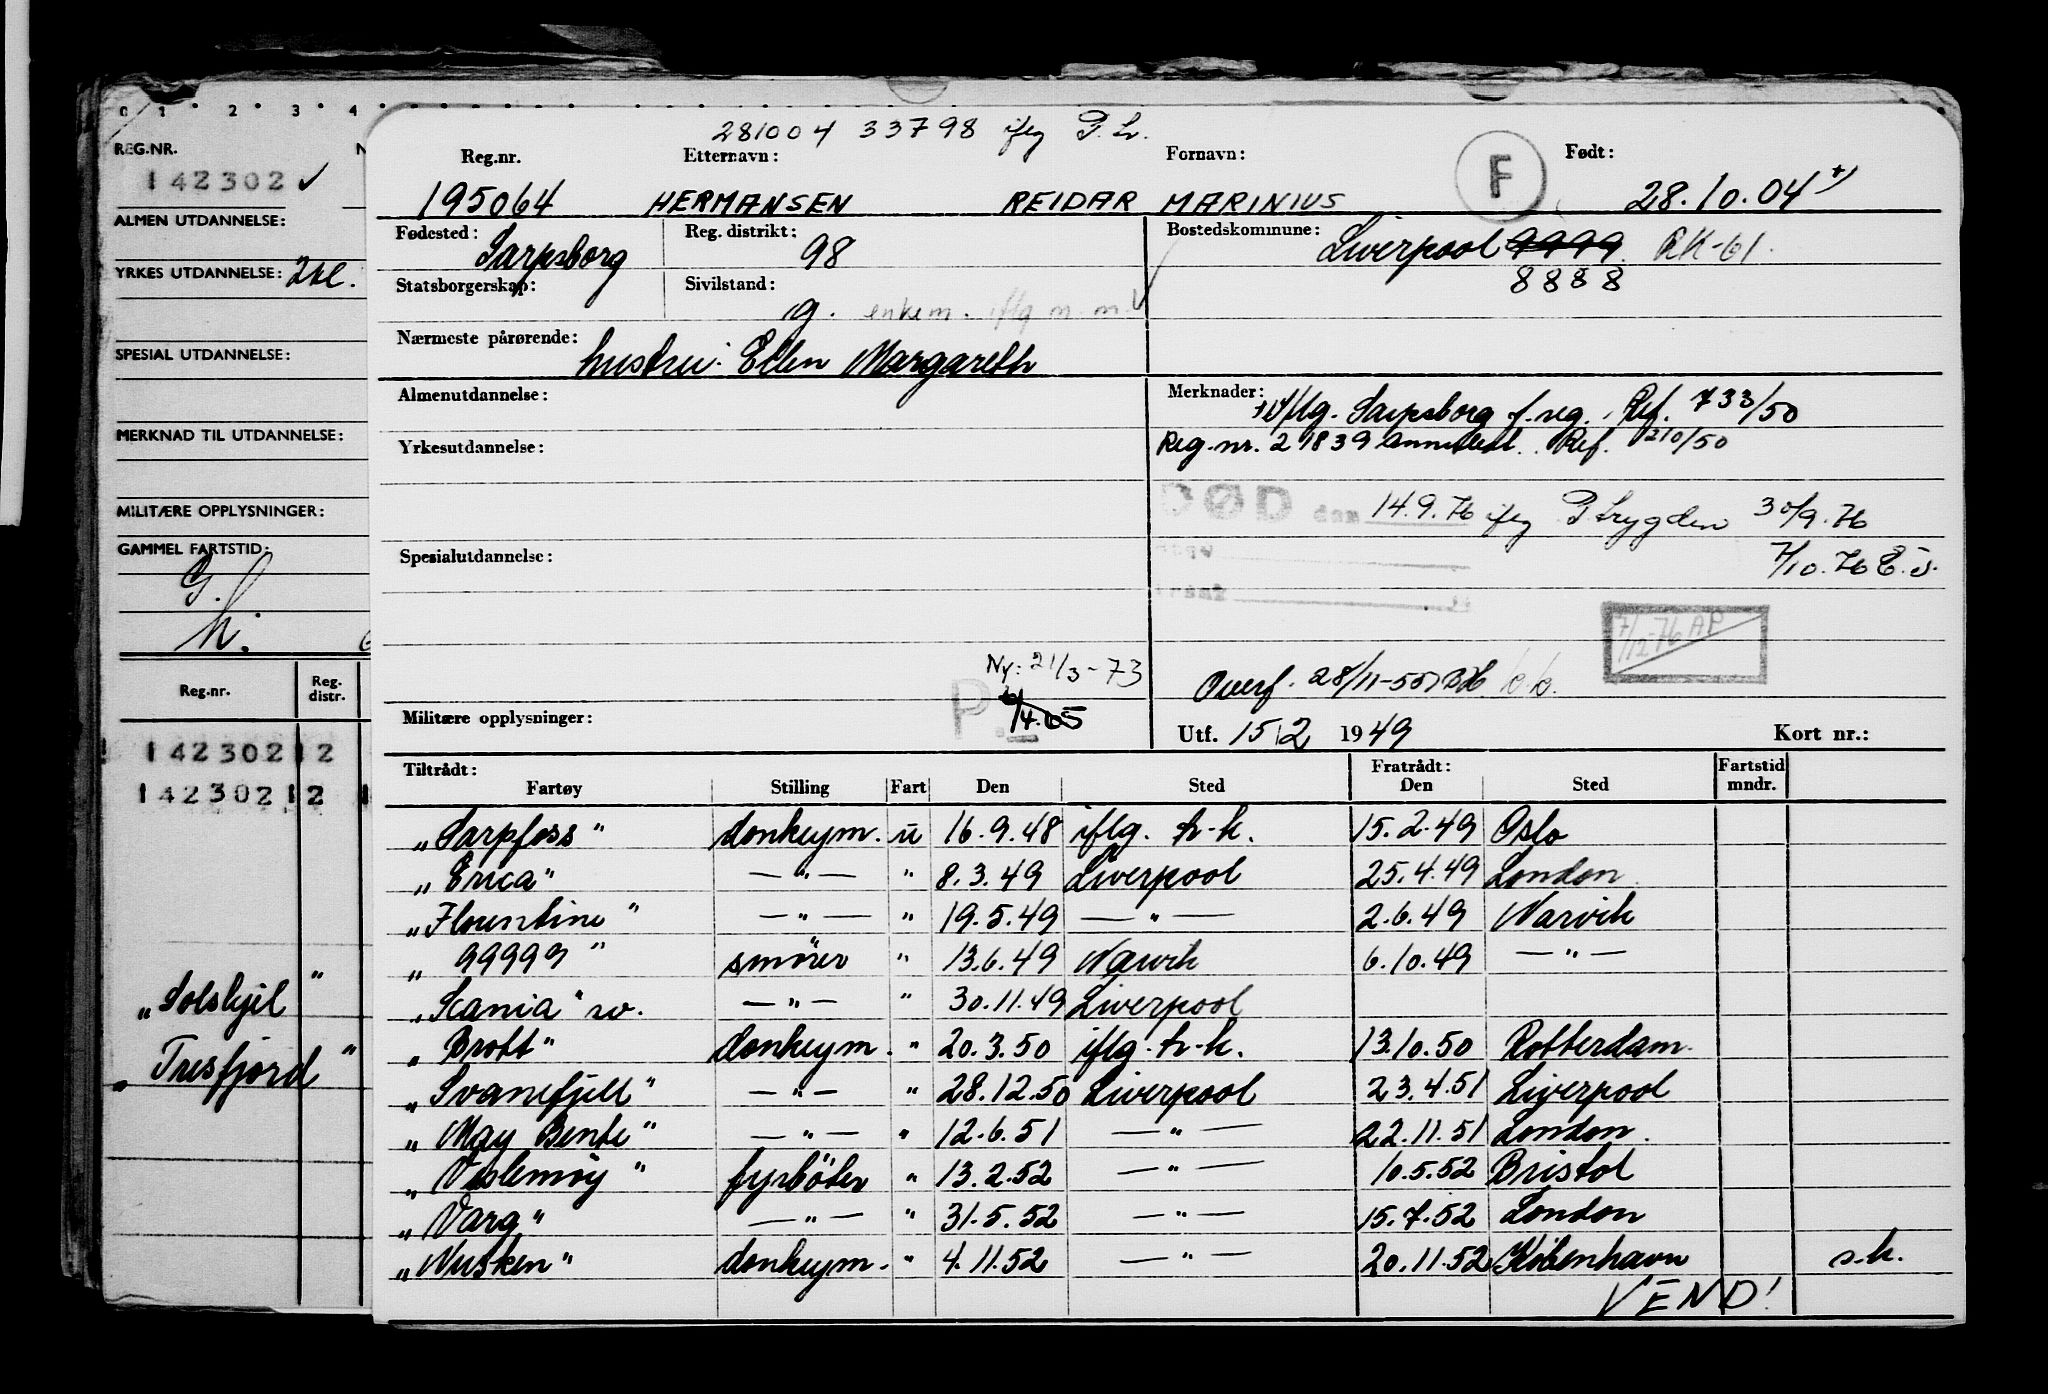 0 1 2 3 4
REG.NR. N
142302 ✓
ALMEN UTDANNELSE:
YRKES UTDANNELSE: 2kl.
SPESIAL UTDANNELSE:
MERKNAD TIL UTDANNELSE:
MILITÆRE OPPLYSNINGER:
GAMMEL FARTSTID:
G.
h.
Reg.nr. Reg. distr.
142302 12
142302 12 1
„Solskjel"
„Tresfjord"
281004 33798 ifg P.tr.
Reg.nr. Etternavn: Fornavn: F Født:
195064 HERMANSEN REIDAR MARINIUS 28.10.04 +)
Fødested: Sarpsborg Reg. distrikt: 98 Bostedskommune: Liverpool 9999 RK-61.
8888
Statsborgerskap: Sivilstand: g. enkem. iflg m.m.
Nærmeste pårørende: hustru: Ellen Margareth
Almenutdannelse: Merknader: +) Iflg. Sarpsborg f.reg. Ref. 733/50
Yrkesutdannelse: Reg.nr. 21839 annullert. Ref. 210/50
DØD den 14.9.76 ifg P.trygden 30/9.76
Spesialutdannelse: 7/10.76 E.S.
7/12-76 AP
Ny: 21/3-73
Overf. 28/11-55
P. /4.65
Militære opplysninger: Utf. 15/2 1949 Kort nr.:
Tiltrådt: Fratrådt: Fartstid
Fartøy Stilling Fart Den Sted Den Sted mndr.
„Sarpfoss" donkeym. u 16.9.48 iflg. h-k. 15.2.49 Oslo
„Erica" — " — " 8.3.49 Liverpool 25.4.49 London
„Florentine" — " — " 19.5.49 — " — 2.6.49 Narvik
„99999" smører " 13.6.49 Narvik 6.10.49 — " —
„Scania" sv. — " — " 30.11.49 Liverpool
„Brott" donkeym. " 20.3.50 iflg. h-k. 13.10.50 Rotterdam
„Svanefjell" — " — " 28.12.50 Liverpool 23.4.51 Liverpool
„May Bente" — " — " 12.6.51 — " — 22.11.51 London.
„Veslemøy" fyrbøter " 13.2.52 — " — 10.5.52 Bristol
„Varg" — " — " 31.5.52 — " — 15.7.52 London
„Nusken" donkeym. " 4.11.52 — " — 20.11.52 København s.k.
VEND!